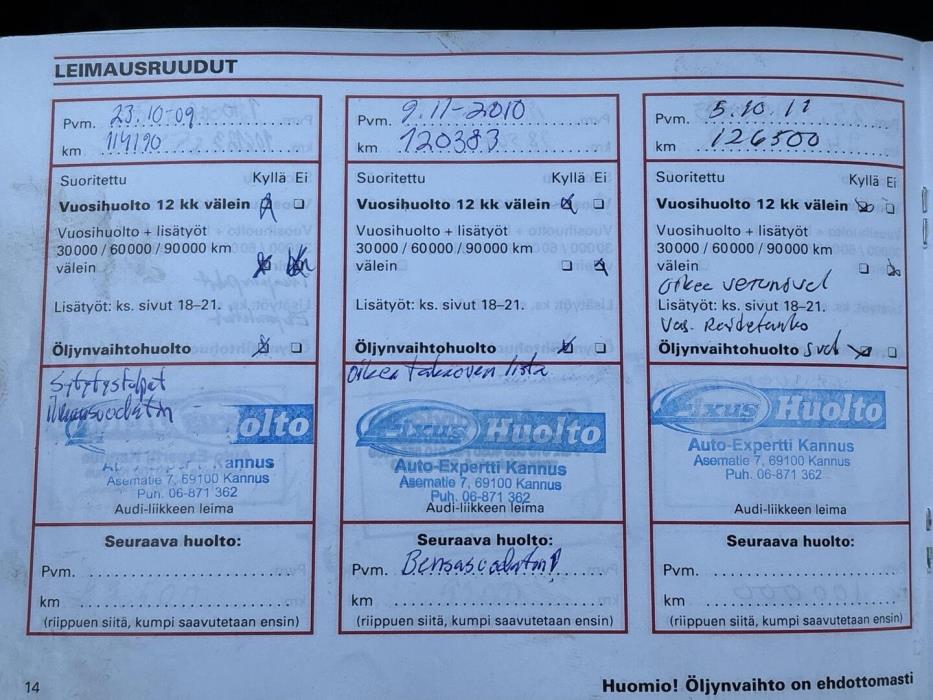 LEIMAUSRUUDUT
Pvm. 23.10-09
km 114190
Suoritettu Kyllä Ei
Vuosihuolto 12 kk välein
Vuosihuolto + lisätyöt
30000 / 60000 / 90000 km
välein
Lisätyöt: ks. sivut 18–21.
Öljynvaihtohuolto
Sytytystulpat
Ilmansuodatin
olto
Kannus
Asematie 7, 69100 Kannus
Puh. 06-871 362
Audi-liikkeen leima
Seuraava huolto:
Pvm.
km
(riippuen siitä, kumpi saavutetaan ensin)
Pvm. 9.11-2010
km 120383
Suoritettu Kyllä Ei
Vuosihuolto 12 kk välein
Vuosihuolto + lisätyöt
30000 / 60000 / 90000 km
välein
Lisätyöt: ks. sivut 18–21.
Öljynvaihtohuolto
Oikea takaoven lista
Fixus Huolto
Auto-Expertti Kannus
Asematie 7, 69100 Kannus
Puh. 06-871 362
Audi-liikkeen leima
Seuraava huolto:
Pvm. Bensasuodatin
km
(riippuen siitä, kumpi saavutetaan ensin)
Pvm. 5.10.11
km 126500
Suoritettu Kyllä Ei
Vuosihuolto 12 kk välein
Vuosihuolto + lisätyöt
30000 / 60000 / 90000 km
välein
Oikea
Lisätyöt: ks. sivut 18–21.
Vas.
Öljynvaihtohuolto
Fixus Huolto
Auto-Expertti Kannus
Asematie 7, 69100 Kannus
Puh. 06-871 362
Audi-liikkeen leima
Seuraava huolto:
Pvm.
km
(riippuen siitä, kumpi saavutetaan ensin)
14
Huomio! Öljynvaihto on ehdottomasti